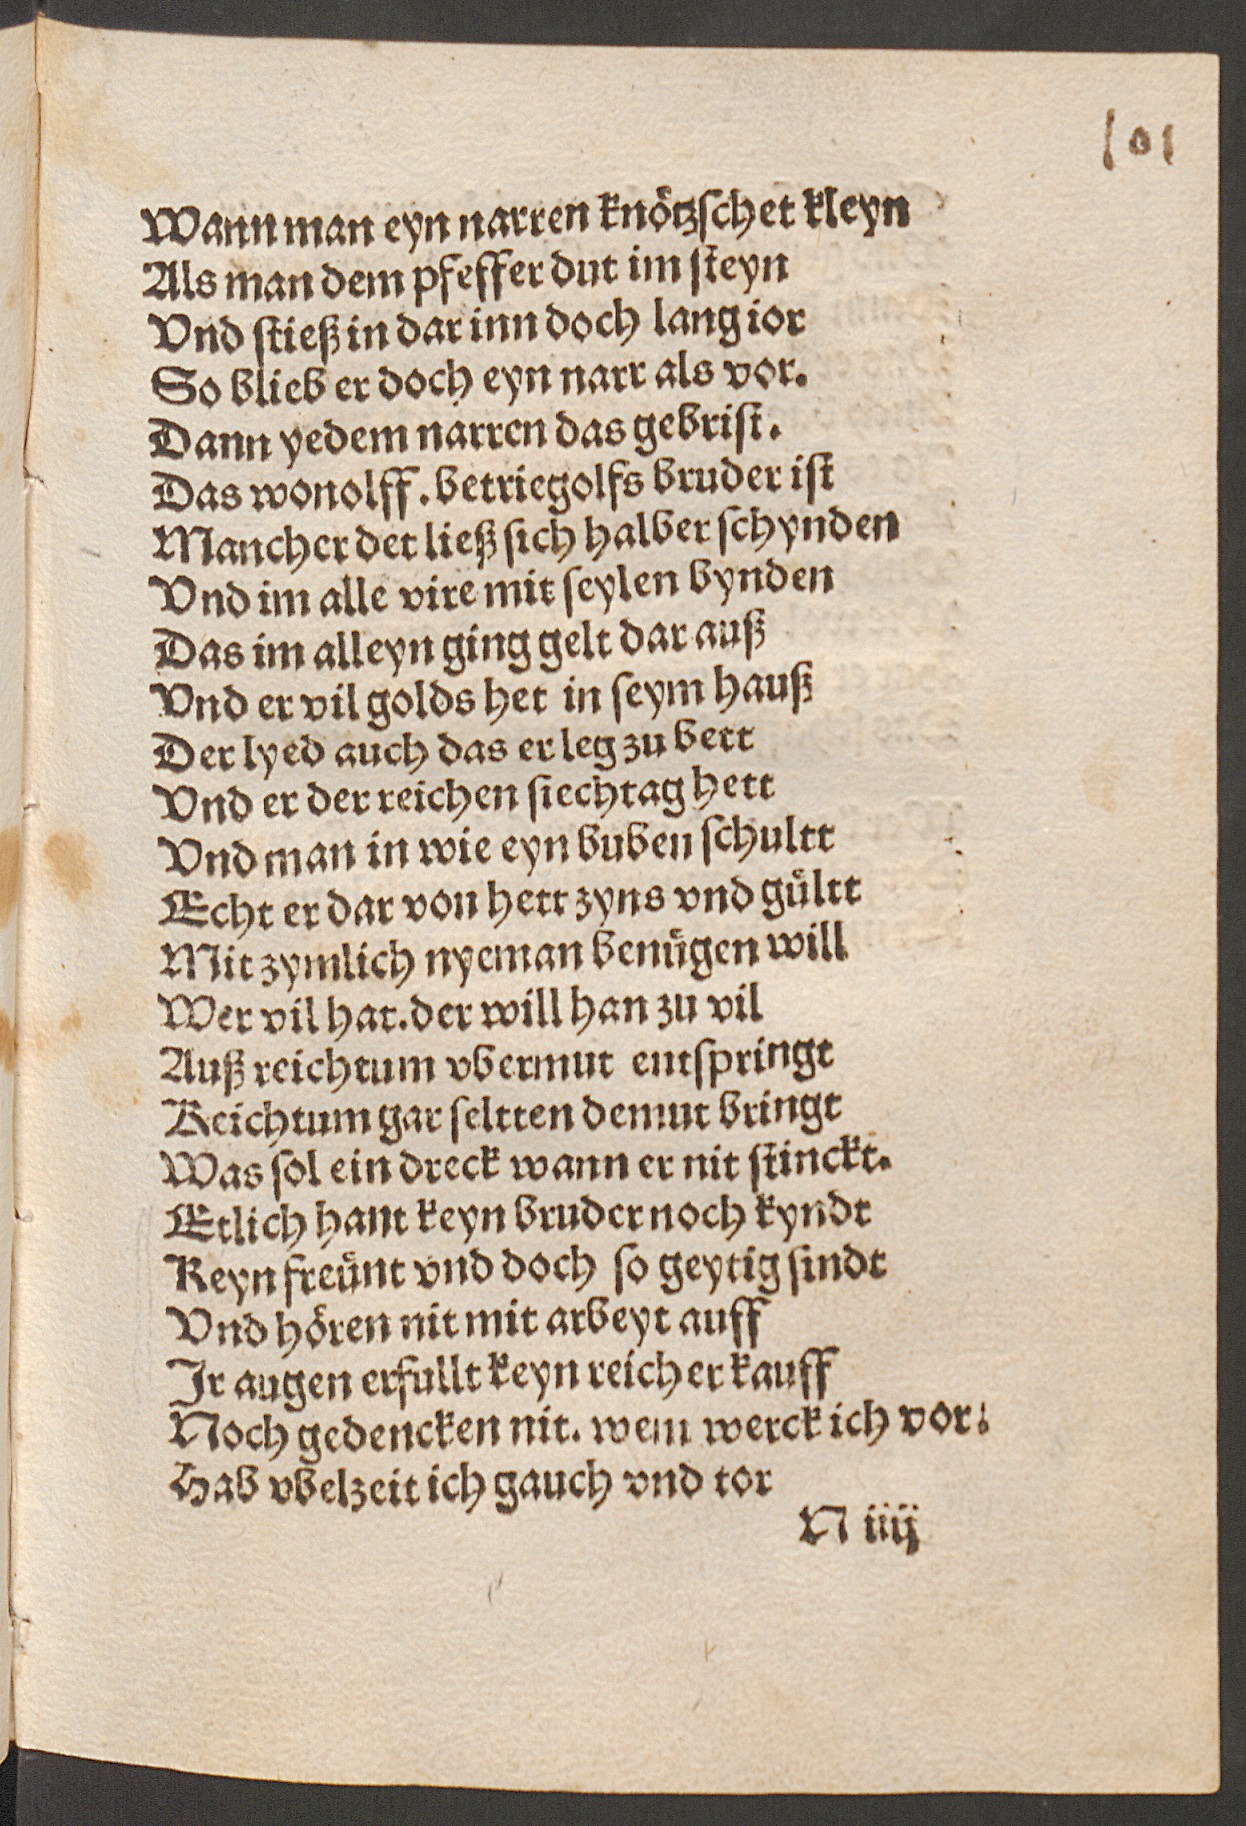 101
Wann man eyn narren knötzschet kleyn
Als man dem pfeffer dut im steyn
Vnd stieß in dar inn doch lang ior
So blieb er doch eyn narr als vor.
Dann yedem narren das gebrist.
Das wonolff. betriegolfs bruder ist
Mancher der ließ sich halber schynden
Vnd im alle vire mit seylen bynden
Das im alleyn ging gelt dar auß
Vnd er vil golds het in seym hauß
Der lyed auch das er leg zu bett
Vnd er der reichen siechtag hett
Vnd man in wie eyn buben schultt
Echt er dar von hett zyns vnd gültt
Mit zymlich nyeman benügen will
Wer vil hat. der will han zu vil
Auß reichtum vbermut entspringt
Reichtum gar seltten demut bringt
Was sol ein dreck wann er nit stinckt.
Etlich hant keyn bruder noch kyndt
Keyn freünt vnd doch so geytig sindt
Vnd hören nit mit arbeyt auff
Ir augen erfullt keyn reicher kauff
Noch gedencken nit. wem werck ich vor.
Hab vbelzeit ich gauch vnd tor
N iiij